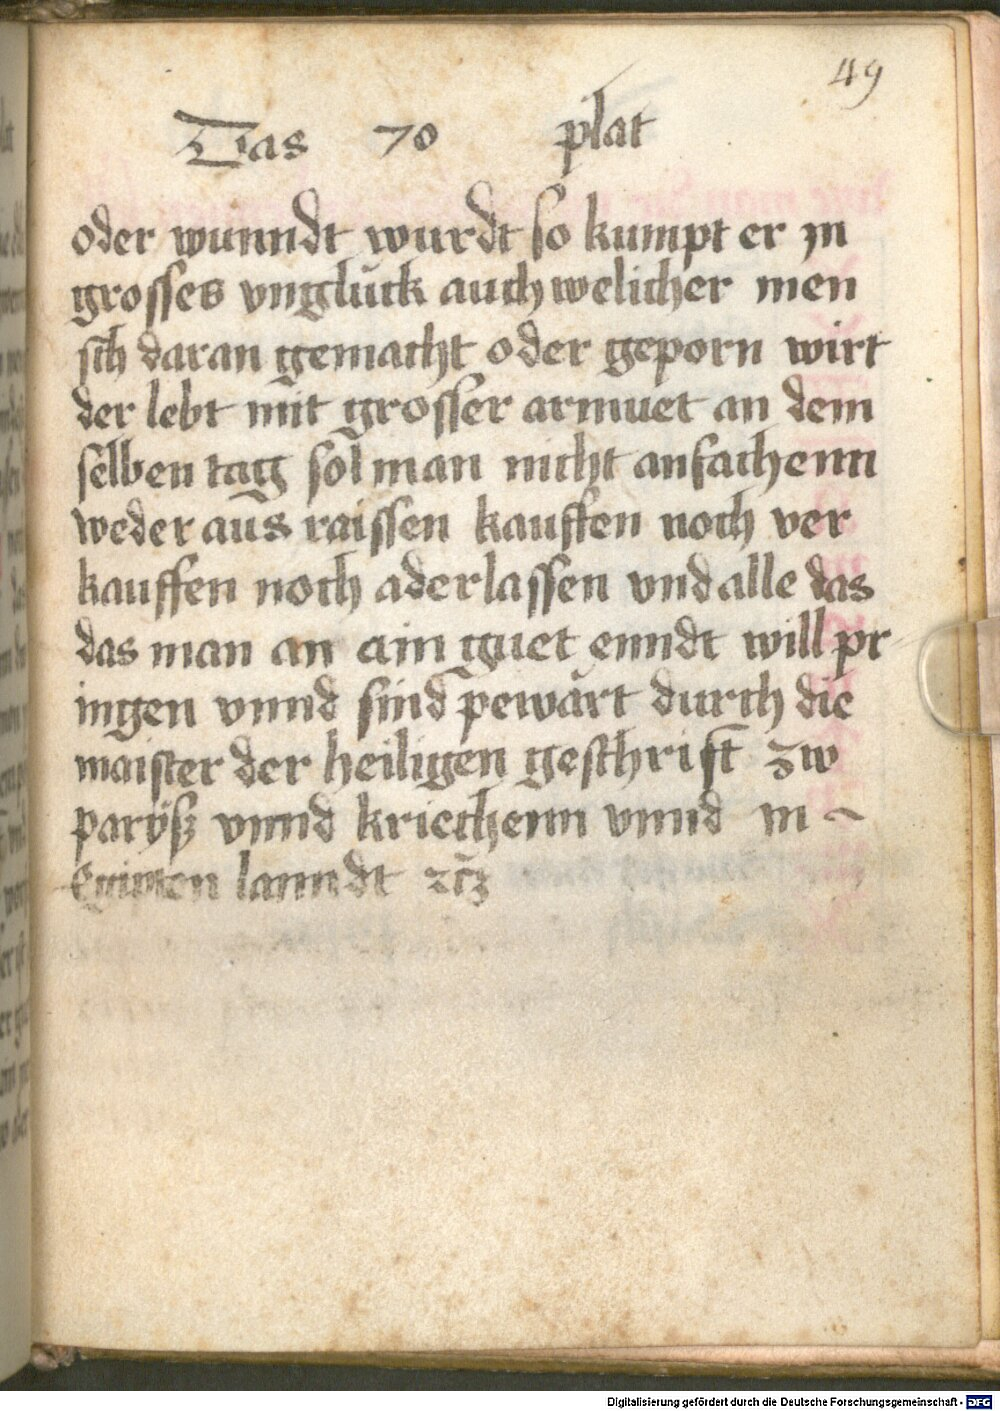 49
Das 70 plat
oder wunndt wurdt so kumpt er jn
grosses vnglück auch welicher men
sch daran gemacht oder geporn wirt
der lebt mit grosser armuet an dem
selben tag sol man nicht anfachenn
weder aus raissen kauffen noch ver
kauffen noch aderlassen vnd alle das
das man an ain guet enndt will pr
ingen vnnd sind pewärt durch die
maister der heiligen geschrift zw
parÿsz vnnd kriechenn vnnd in ~
Egipten lanndt
Digitalisierung gefördert durch die Deutsche Forschungsgemeinschaft - DFG